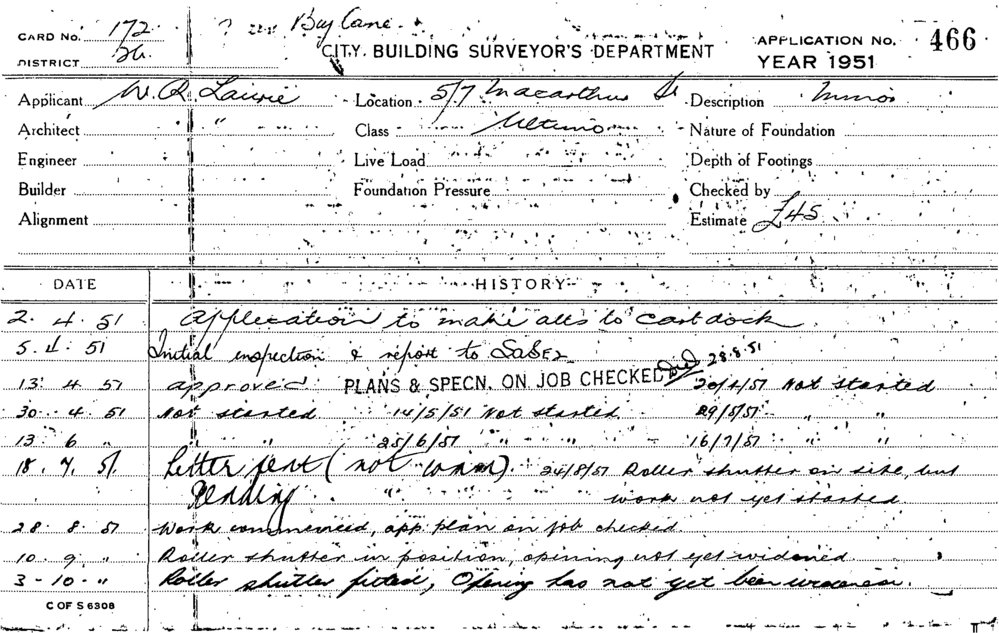 CARD No. 172 Bay Lane
DISTRICT 26 CITY BUILDING SURVEYOR'S DEPARTMENT APPLICATION No. 466
YEAR 1951
Applicant W. R. Laurie Location 5/7 Macarthur St Description Minor
Architect " Class Ultimo Nature of Foundation
Engineer Live Load Depth of Footings
Builder Foundation Pressure Checked by
Alignment Estimate £45
DATE HISTORY
2. 4. 51 Application to make alts to cart dock
5. 4. 51 Initial inspection & report to
13. 4. 51 approved PLANS & SPECN. ON JOB CHECKED 28.8.51 20/4/51 Not started
30. 4. 51 Not started 14/5/51 Not started 29/5/51 " "
13 6 " " " 25/6/51 " " 16/7/51 " "
18. 7. 51. Letter sent (not comm). 24/8/51 Roller shutter on site, but
Pending " work not yet started
28. 8. 51 Work commenced, app. plan on job checked
10. 9. " Roller shutter in position, opening not yet widened
3 - 10 - " Roller shutter fitted, Opening has not yet been widened.
C OF S 6308